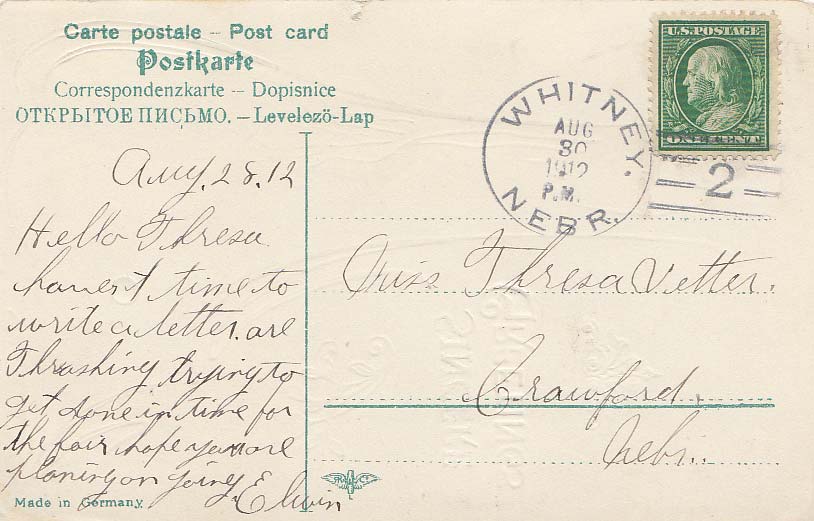 Carte postale – Post card
Postkarte
Correspondenzkarte – Dopisnice
ОТКРЫТОЕ ПИСЬМО. – Levelező-Lap
U.S. POSTAGE
ONE CENT
WHITNEY,
AUG
30
1912
P.M.
NEBR.
2
Aug. 28. 12
Hello Thresa
havent time to
write a letter. are
Thrashing trying to
get done in time for
the fair hope you are
planing on going.
Elwin
Miss Thresa Vetter.
Crawford,
Nebr.
Made in Germany